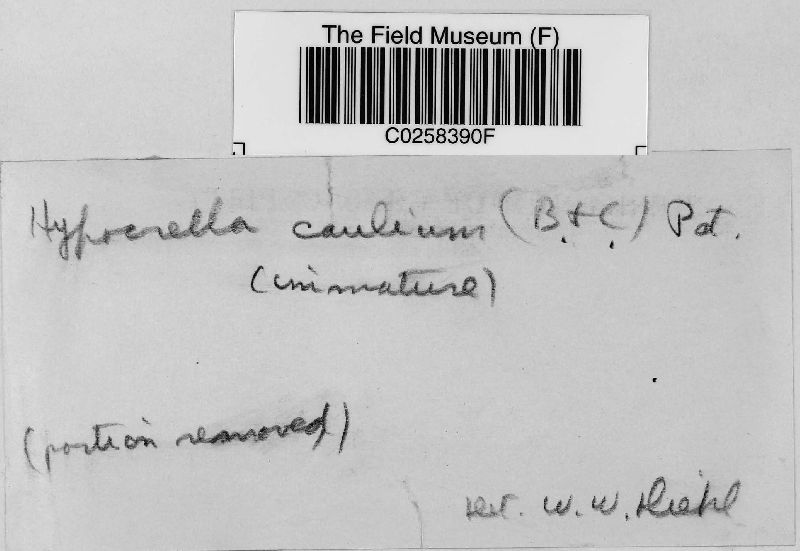 The Field Museum (F)
C0258390F
Hypocrella caulium (B. & C.) Pat.
(immature)
(portion removed)
det. W. W. Diehl